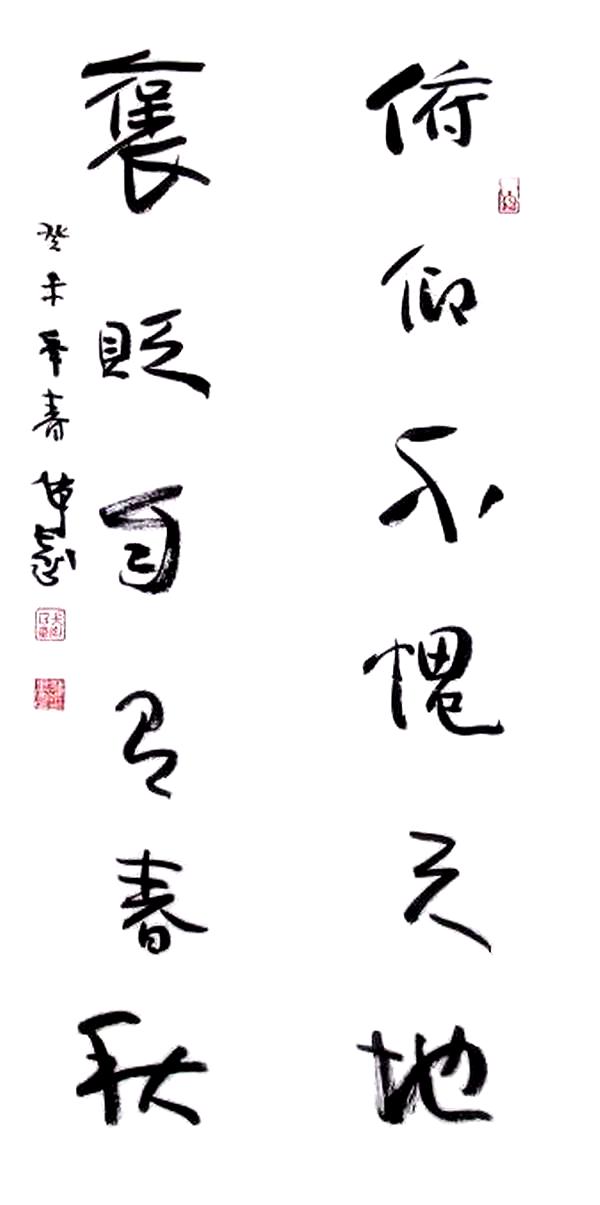 俯仰不愧天地
褒貶自有春秋
癸未年春